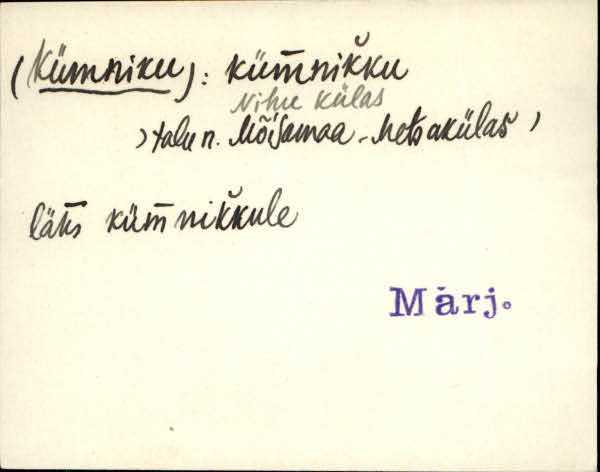 (Kümniku): küm̄nik̆ku
Nihu külas
) talu n. Mõisamaa-Metsakülas )
läks küm̄nik̆kule
Märj.